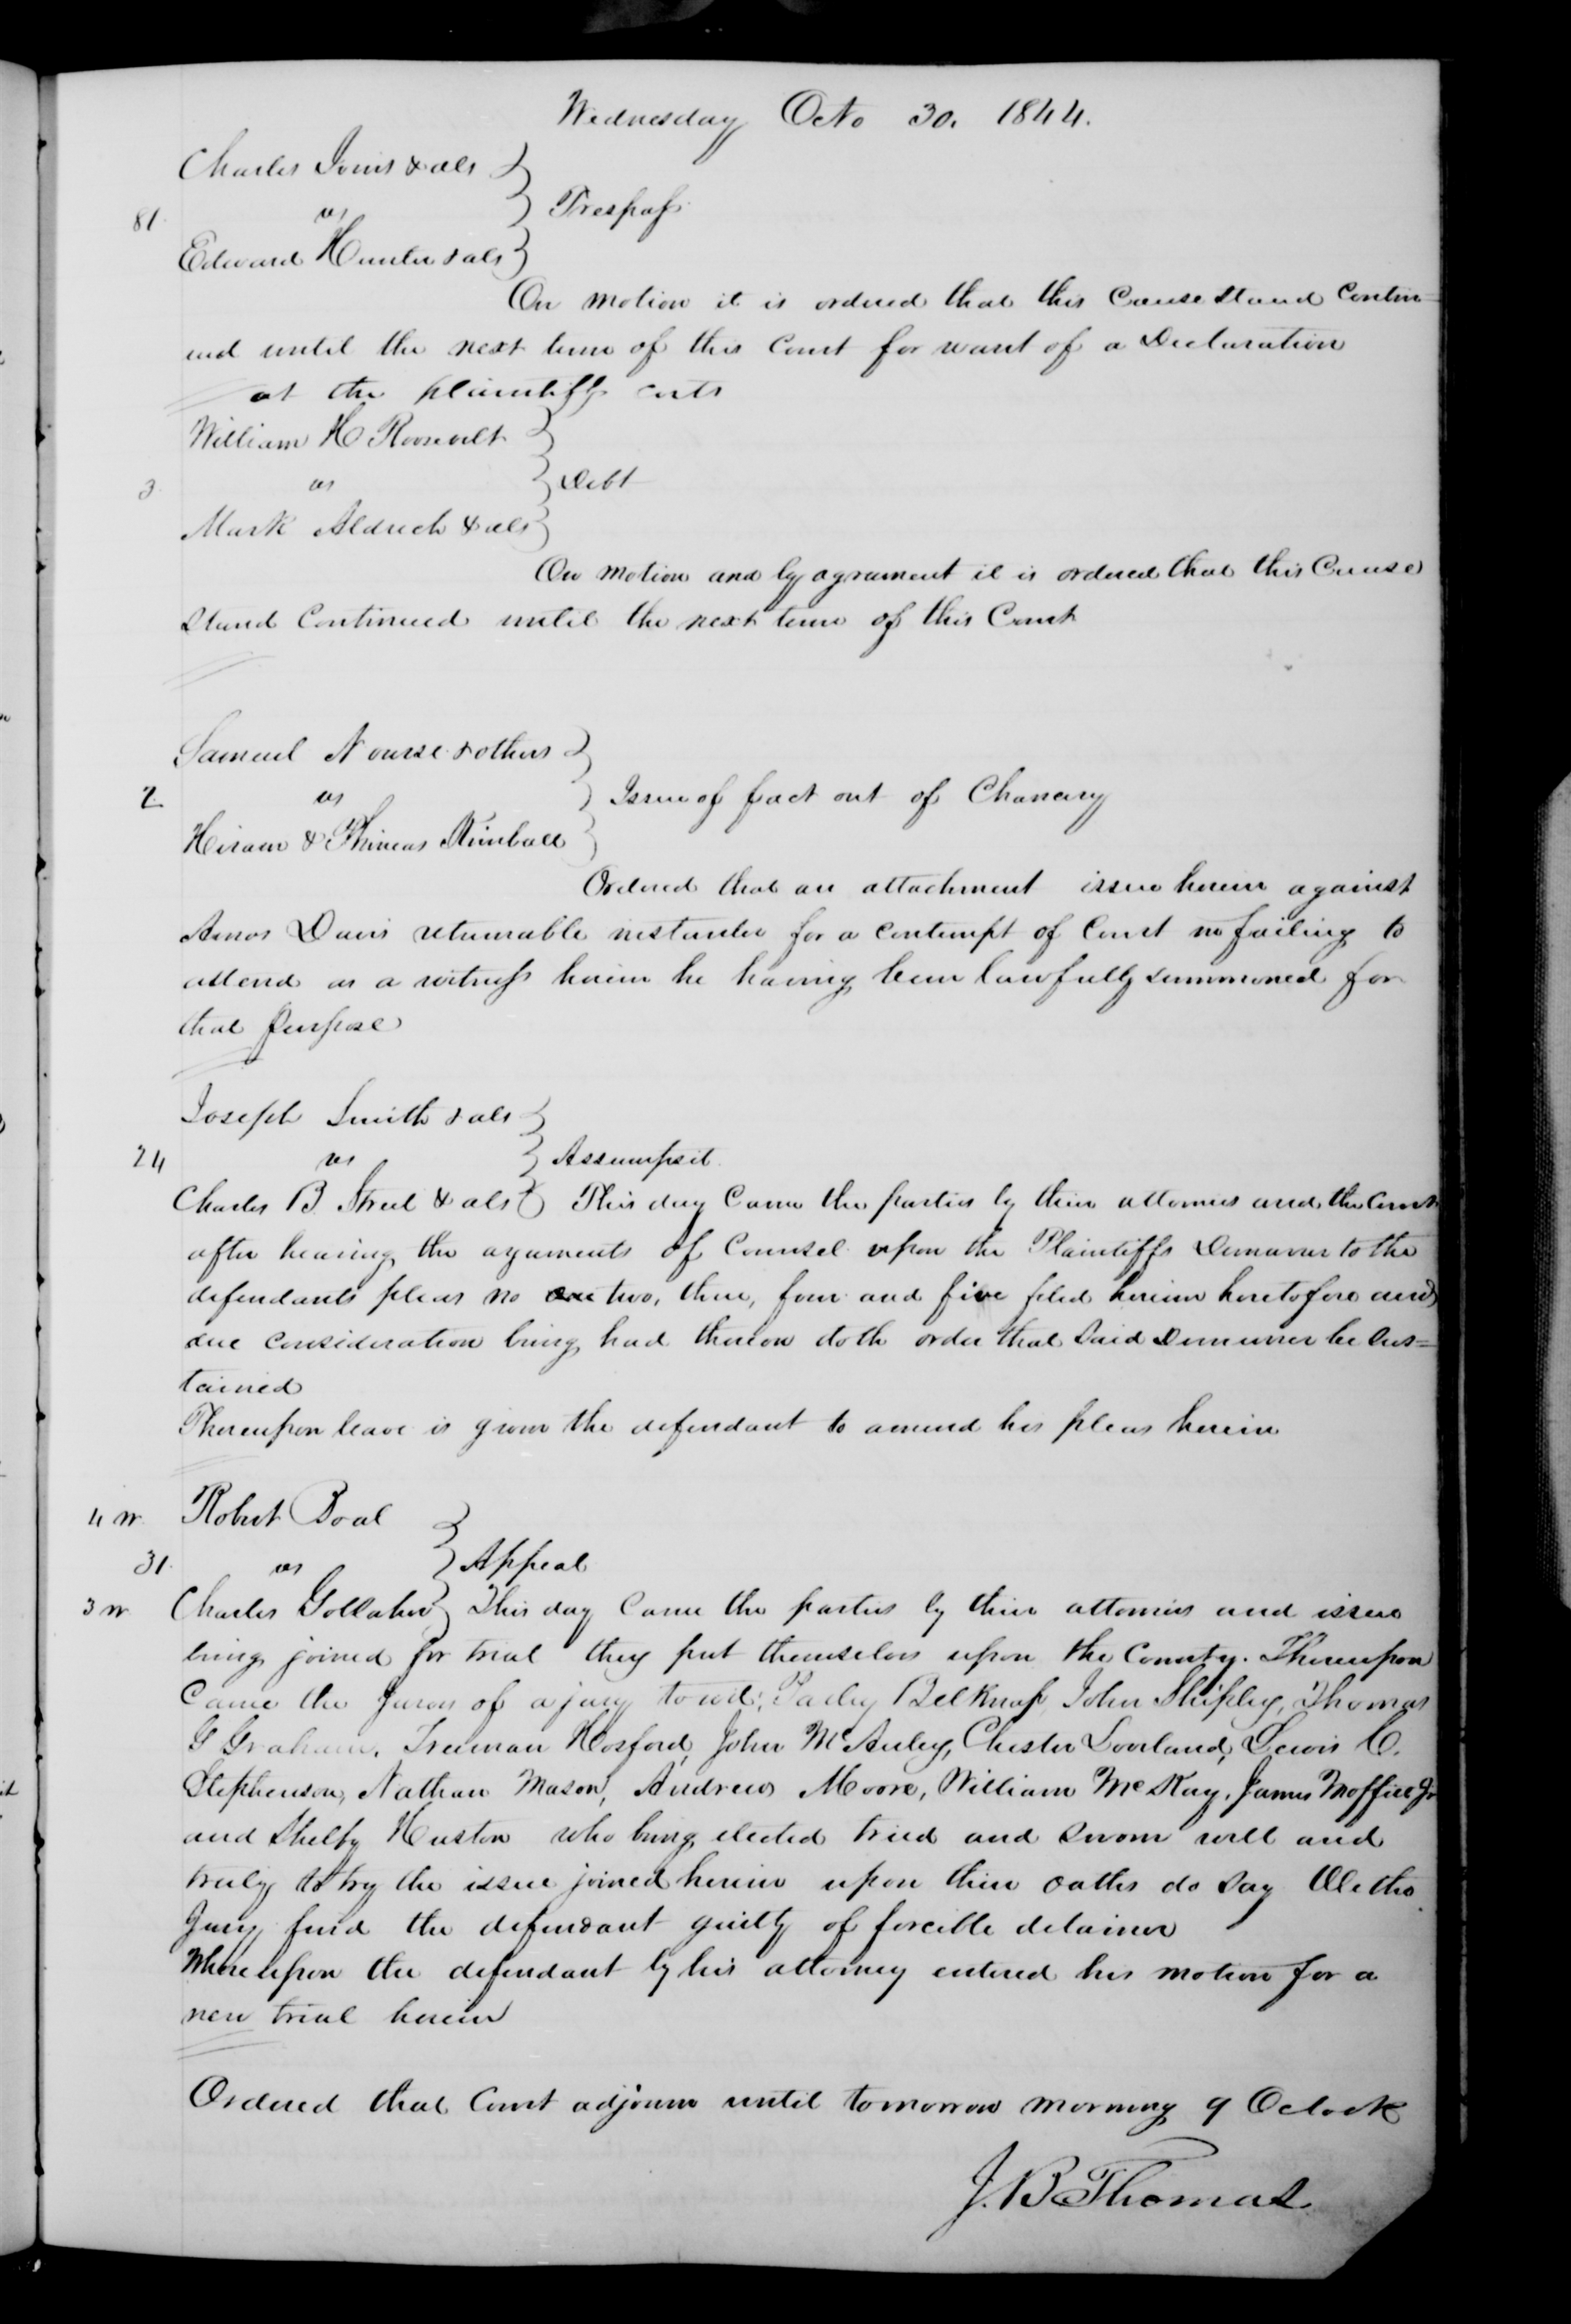 Wednesday Octo 30. 1844.
Charles Ivins & als
81. vs Trespass
Edward Hunter & als
On motion it is ordered that this Cause stand Contin=
ued until the next term of this Court for want of a Declaration
at the plaintiffs costs
William H Roosevelt
3. vs Debt
Mark Aldrich & als
On motion and by agreement it is ordered that this Cause
stand Continued until the next term of this Court
Samuel Nourse & others
2 vs Issue of fact out of Chancery
Hiram & Phineas Kimball
Ordered that an attachment issue herein against
Amos Davis returnable instanter for a contempt of Court in failing to
attend as a witness herein he having been lawfully summoned for
that purpose
Joseph Smith & als
24 vs Assumpsit
Charles B. Street & als This day Came the parties by their attornies and the Court
after hearing the arguments of Counsel upon the Plaintiffs Demurrer to the
defendants pleas no two, three, four and five filed herein heretofore and
due consideration being had thereon doth order that said Demurrer be sus=
tained
Thereupon leave is given the defendant to amend his pleas herein
4 w. Robert Boal
31. vs Appeal
3 w Charles Gollaher This day Came the parties by their attornies and issue
being joined for trial they put themselves upon the County. Thereupon
Came the Jurors of a jury towit; Belknap, John Shipley, Thomas
G Graham, Freeman Hosford, John McAuley, Chester Loveland, Lewis C.
Stephenson, Nathan Mason, Andrew Moore, William McKay, James Moffitt Jr
and Shelby Huston who being elected tried and sworn well and
truly to try the issue joined herein upon their oaths do say We the
Jury find the defendant guilty of forcible detainer
Whereupon the defendant by his attorney entered his motion for a
new trial herein
Ordered that Court adjourn until tomorrow morning 9 Oclock
J. B Thomas